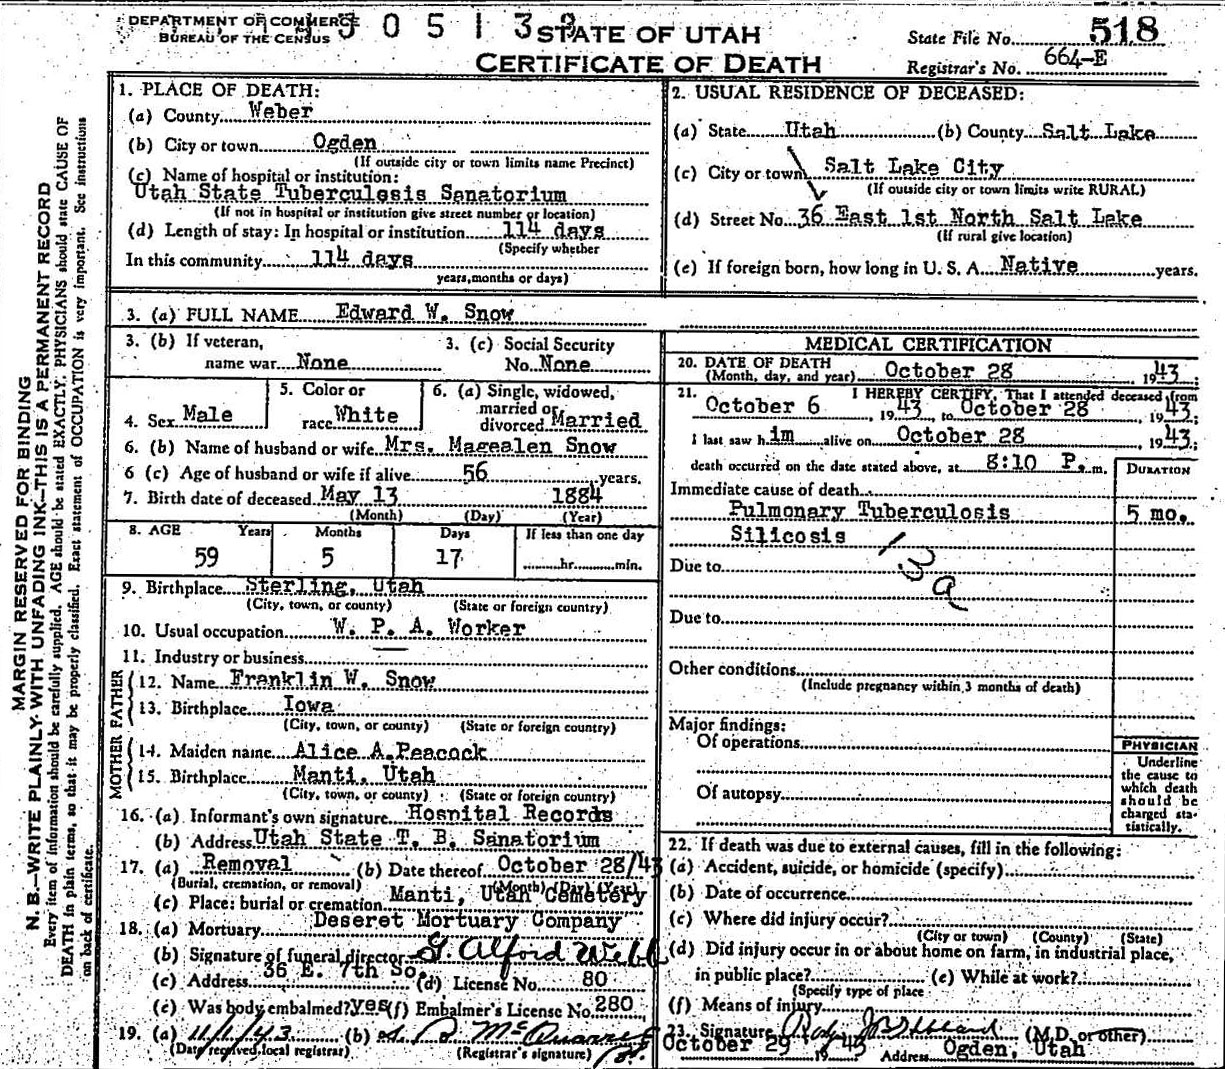 DEPARTMENT OF COMMERCE
BUREAU OF THE CENSUS
0 5 1 3
STATE OF UTAH
CERTIFICATE OF DEATH
State File No. 518
Registrar's No. 664-E
MARGIN RESERVED FOR BINDING
N. B.—WRITE PLAINLY WITH UNFADING INK—THIS IS A PERMANENT RECORD
Every item of information should be carefully supplied. AGE should be stated EXACTLY. PHYSICIANS should state CAUSE OF
DEATH in plain terms, so that it may be properly classified. Exact statement of OCCUPATION is very important. See instructions
on back of certificate.
1. PLACE OF DEATH:
(a) County Weber
(b) City or town Ogden
(If outside city or town limits name Precinct)
(c) Name of hospital or institution:
Utah State Tuberculosis Sanatorium
(If not in hospital or institution give street number or location)
(d) Length of stay: In hospital or institution 114 days
(Specify whether
In this community 114 days
years, months or days)
2. USUAL RESIDENCE OF DECEASED:
(a) State Utah (b) County Salt Lake
(c) City or town Salt Lake City
(If outside city or town limits write RURAL)
(d) Street No. 36 East 1st North Salt Lake
(If rural give location)
(e) If foreign born, how long in U. S. A. Native years.
3. (a) FULL NAME Edward W. Snow
3. (b) If veteran,
name war None
3. (c) Social Security
No. None
4. Sex Male
5. Color or
race White
6. (a) Single, widowed,
married or
divorced Married
6. (b) Name of husband or wife Mrs. Magealen Snow
6 (c) Age of husband or wife if alive 56 years.
7. Birth date of deceased May 13 1884
(Month) (Day) (Year)
8. AGE Years Months Days If less than one day
59 5 17 hr. min.
9. Birthplace Sterling, Utah
(City, town, or county) (State or foreign country)
10. Usual occupation W. P. A. Worker
11. Industry or business
FATHER
12. Name Franklin W. Snow
13. Birthplace Iowa
(City, town, or county) (State or foreign country)
MOTHER
14. Maiden name Alice A.Peacock
15. Birthplace Manti, Utah
(City, town, or county) (State or foreign country)
16. (a) Informant's own signature Hospital Records
(b) Address Utah State T. B. Sanatorium
17. (a) Removal (b) Date thereof October 28/43
(Burial, cremation, or removal) (Month) (Day) (Year)
(c) Place: burial or cremation Manti, Utah Cemetery
18. (a) Mortuary Deseret Mortuary Company
(b) Signature of funeral director G. Alford Webb
(c) Address 36 E. 7th So. (d) License No. 80
(e) Was body embalmed? yes (f) Embalmer's License No. 280
19. (a) 11/1/43 (b)
(Date received local registrar) (Registrar's signature)
MEDICAL CERTIFICATION
20. DATE OF DEATH
(Month, day, and year) October 28, 1943;
21. I HEREBY CERTIFY, That I attended deceased from
October 6, 1943, to October 28, 1943;
I last saw him alive on October 28, 1943;
death occurred on the date stated above, at 8:10 P. m.
DURATION
Immediate cause of death
Pulmonary Tuberculosis 5 mo.
Silicosis
13a
Due to
Due to
Other conditions
(Include pregnancy within 3 months of death)
Major findings:
Of operations
Of autopsy
PHYSICIAN
Underline
the cause to
which death
should be
charged sta-
tistically.
22. If death was due to external causes, fill in the following:
(a) Accident, suicide, or homicide (specify)
(b) Date of occurrence
(c) Where did injury occur?
(City or town) (County) (State)
(d) Did injury occur in or about home on farm, in industrial place,
in public place? (e) While at work?
(Specify type of place
(f) Means of injury
23. Signature (M.D. or other)
October 29 1943 Address Ogden, Utah